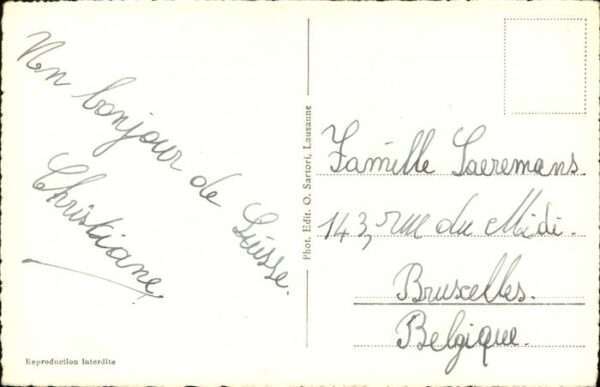 Un bonjour de Suisse.
Christiane.
Reproduction interdite
Phot. Edit. O. Sartori, Lausanne
Famille Saeremans.
143, rue du Midi.
Bruxelles.
Belgique.